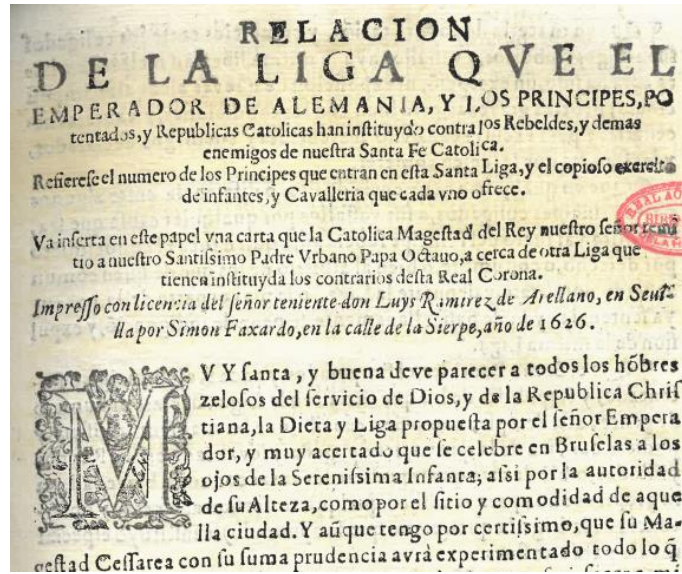 RELACION
DE LA LIGA QVE EL
EMPERADOR DE ALEMANIA, Y LOS PRINCIPES, PO
tentados, y Republicas Catolicas han inſtituydo contra los Rebeldes, y demas
enemigos de nueſtra Santa Fe Catolica.
Refiereſe el numero de los Principes que entran en eſta Santa Liga, y el copioſo exercito
de infantes, y Cavalleria que cada vno ofrece.
Va inſerta en eſte papel vna carta que la Catolica Mageſtad del Rey nueſtro ſeñor remi
tio a nueſtro Santiſsimo Padre Vrbano Papa Octauo, a cerca de otra Liga que
tienen inſtituyda los contrarios deſta Real Corona.
Impreſſo con licencia del ſeñor teniente don Luys Ramirez de Arellano, en Seui-
lla por Simon Faxardo, en la calle de la Sierpe, año de 1626.
MVY ſanta, y buena deve parecer a todos los hõbres
zeloſos del ſervicio de Dios, y de la Republica Chriſ
tiana, la Dieta y Liga propueſta por el ſeñor Empera
dor, y muy acertado que ſe celebre en Bruſelas a los
ojos de la Sereniſsima Infanta; aſsi por la autoridad
de ſu Alteza, como por el ſitio y comodidad de aque
lla ciudad. Y aũque tengo por certiſsimo, que ſu Ma-
geſtad Ceſſarea con ſu ſuma prudencia avrà experimentado todo lo q̃
REAL AC